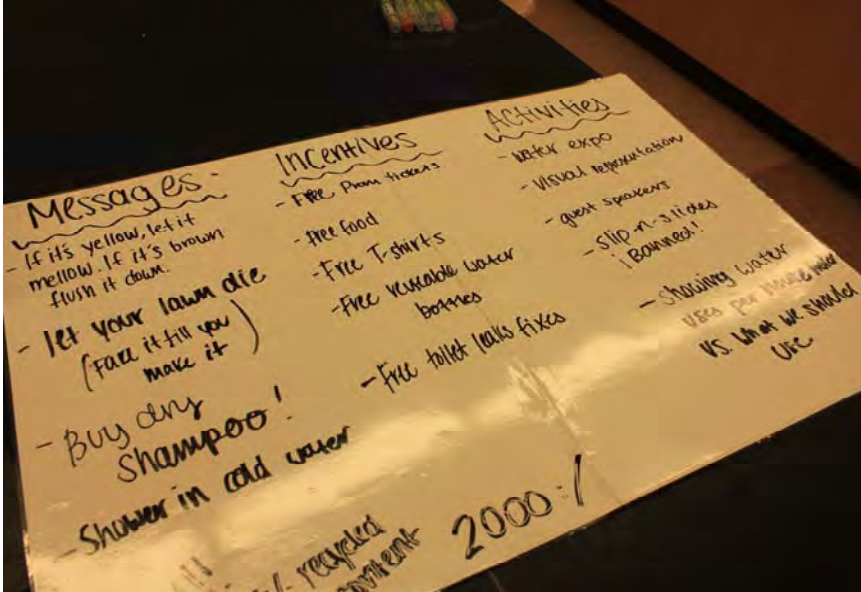 Messages-
- If it's yellow, let it
mellow. If it's brown
flush it down.
- let your lawn die
(Fake it till you
make it)
- Buy dry
Shampoo!
- Shower in cold water
Incentives
- Free Prom tickets
- free food
- Free T-shirts
- Free reusable water
bottles
- Free toilet leaks fixes
Activities
- water expo
- Visual representation
- guest speakers
- slip-n-slides
¡Banned!
- showing water
uses per
vs. what we should
use
recycled
2000 :/